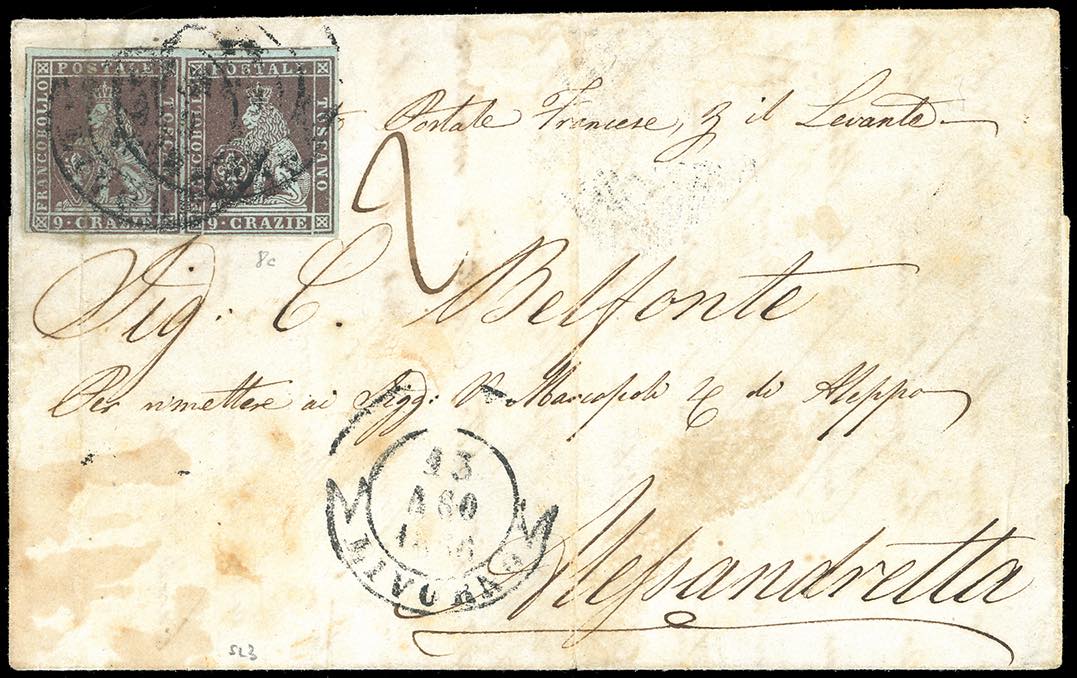 FRANCOBOLLO POSTALE TOSCANO
9·CRAZIE
FRANCOBOLLO POSTALE TOSCANO
9·CRAZIE
Postale Francese, p il Levante
2
8c
Sig: C. Belfonte
Per rimettere ai Sigg: V. Marcopoli & C di Aleppo
13
AGO
1856
LIVORNO
Alessandretta
SL3